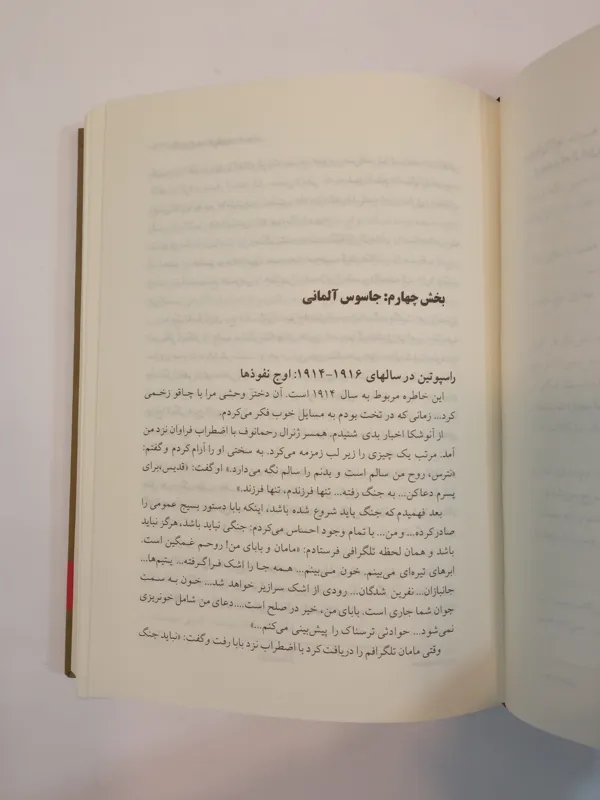 بخش چهارم: جاسوس آلمانی
راسپوتین در سالهای ۱۹۱۶-۱۹۱۴: اوج نفوذها
این خاطره مربوط به سال ۱۹۱۴ است. آن دختر وحشی مرا با چاقو زخمی
کرد... زمانی که در تخت بودم به مسایل خوب فکر می‌کردم.
از آنوشکا اخبار بدی شنیدم. همسر ژنرال رحمانوف با اضطراب فراوان نزد من
آمد. مرتب یک چیزی را زیر لب زمزمه می‌کرد. به سختی او را آرام کردم و گفتم:
«نترس، روح من سالم است و بدنم را سالم نگه می‌دارد.» او گفت: «قدیس، برای
پسرم دعا کن... به جنگ رفته... تنها فرزندم، تنها فرزند.»
بعد فهمیدم که جنگ باید شروع شده باشد، اینکه بابا دستور بسیج عمومی را
صادر کرده... و من... با تمام وجود احساس می‌کردم: جنگی نباید باشد، هرگز نباید
باشد و همان لحظه تلگرافی فرستادم: «مامان و بابای من! روحم غمگین است.
ابرهای تیره‌ای می‌بینم. خون می‌بینم... همه جا را اشک فراگرفته... یتیم‌ها...
جانبازان... نفرین شدگان... رودی از اشک سرازیر خواهد شد... خون به سمت
جوان شما جاری است. بابای من، خیر در صلح است....دعای من شامل خونریزی
نمی‌شود... حوادثی ترسناک را پیش‌بینی می‌کنم...»
وقتی مامان تلگرافم را دریافت کرد با اضطراب نزد بابا رفت و گفت: «نباید جنگ